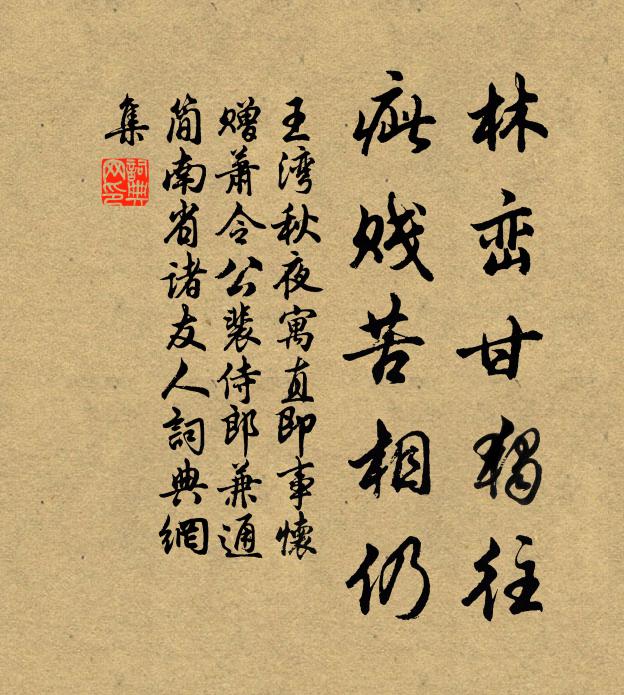 林峦甘独往
疵贱苦相仍
王湾秋夜寓直即事懷
赠萧令公裴侍郎兼通
简南省诸友人詞典網
集
詞典
网印